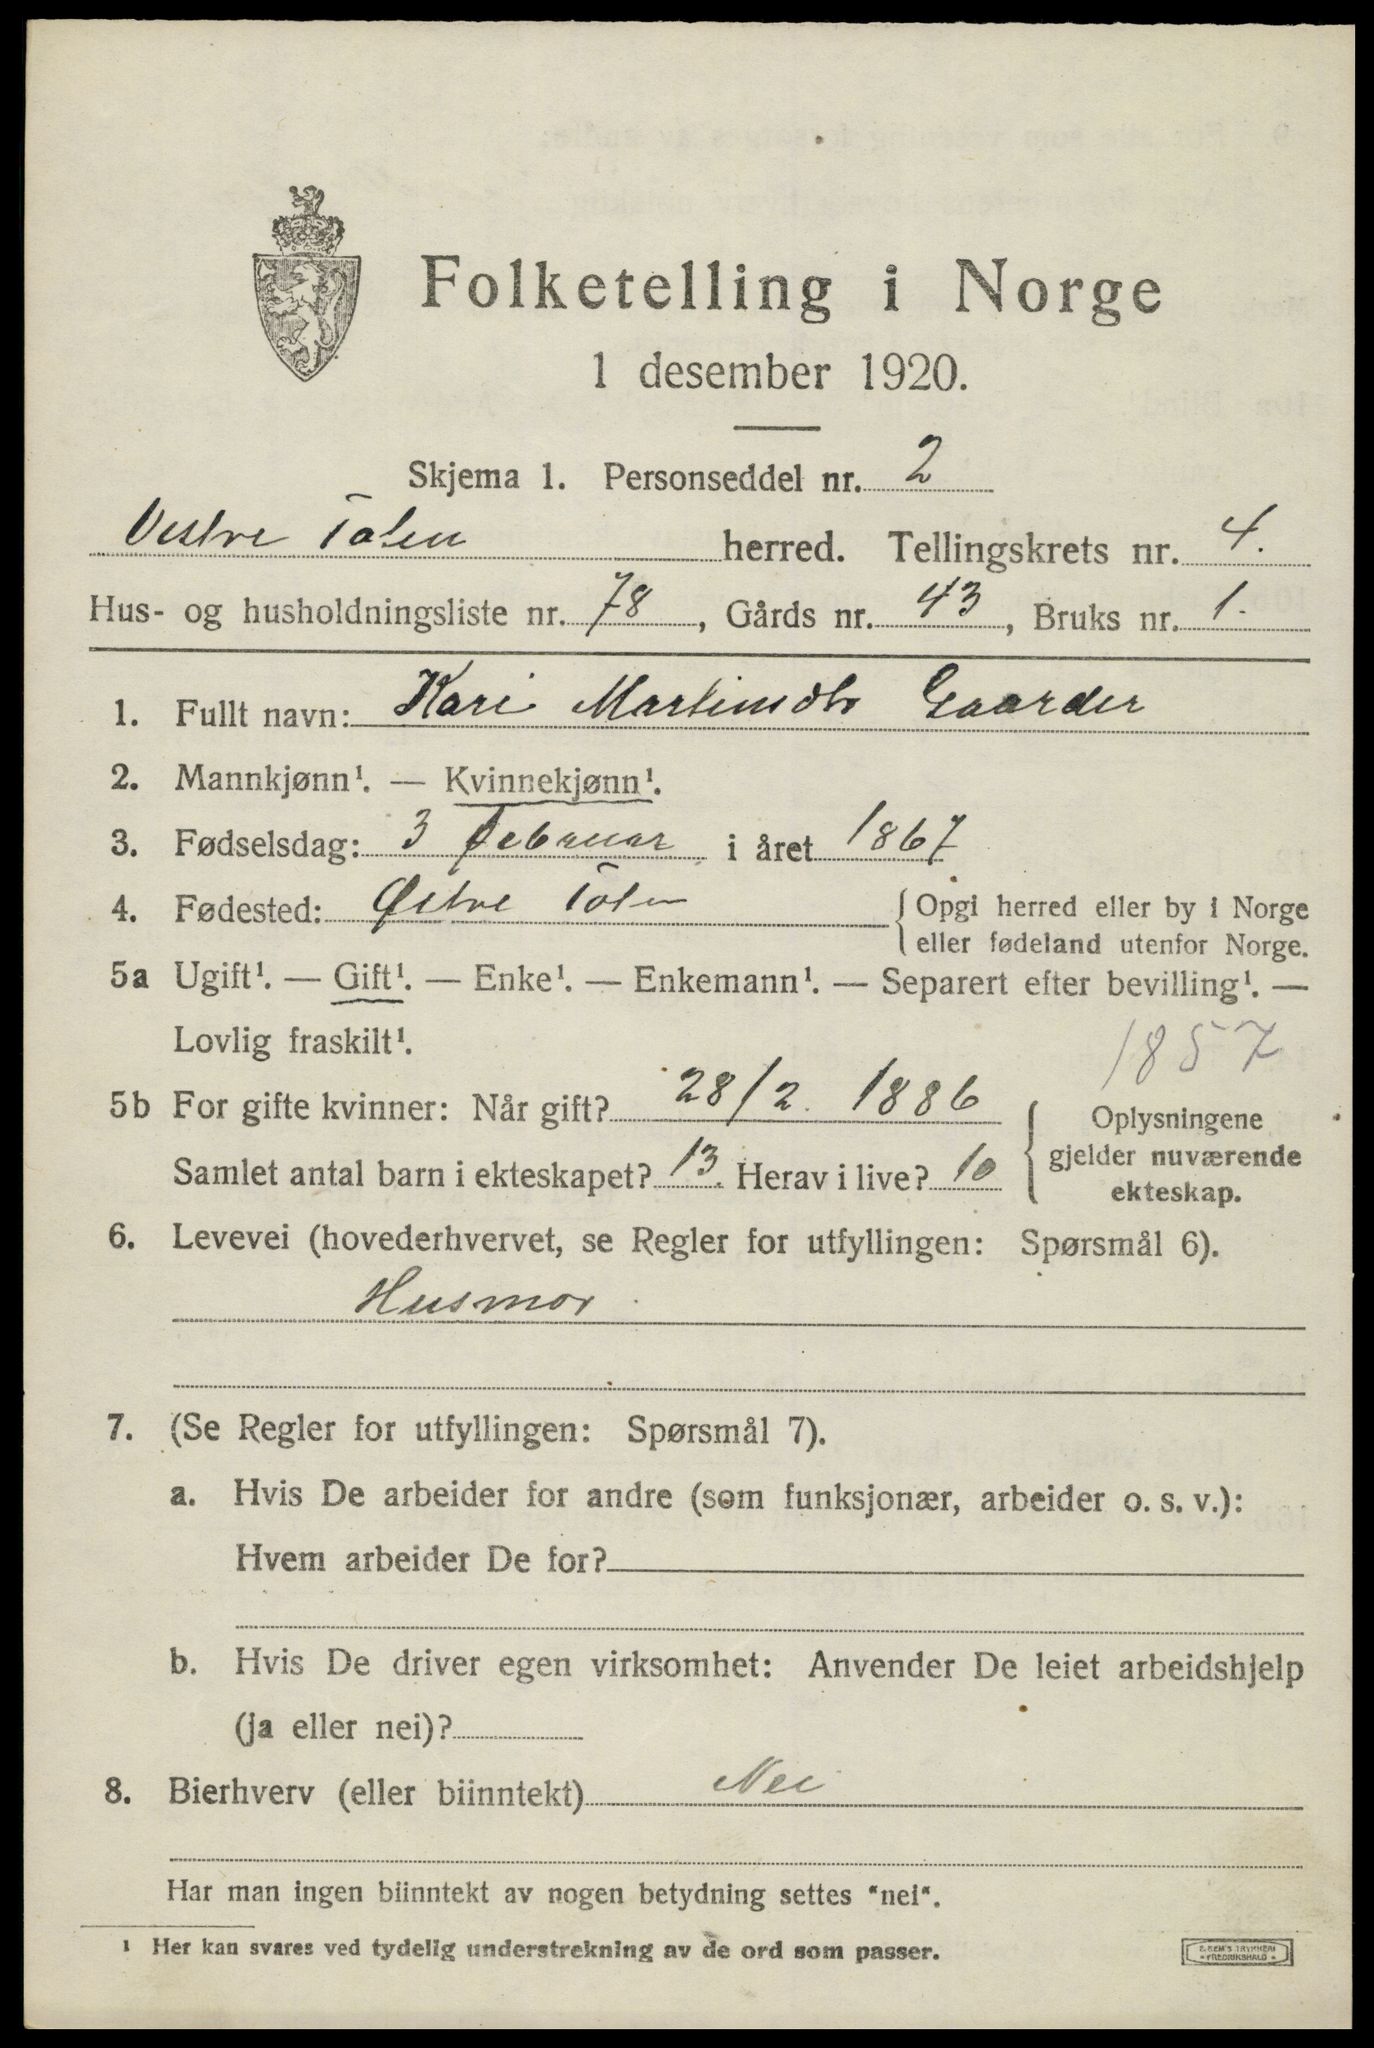 Folketelling i Norge
1 desember 1920.
Skjema 1. Personseddel nr. 2
Vestre Toten herred. Tellingskrets nr. 4.
Hus- og husholdningsliste nr. 78, Gårds nr. 43, Bruks nr. 1.
1. Fullt navn: Kari Martinsdtr Gaarder
2. Mannkjønn¹. — Kvinnekjønn¹.
3. Fødselsdag: 3 Februar i året 1867
4. Fødested: Østre Toten {Opgi herred eller by i Norge
eller fødeland utenfor Norge.
5a Ugift¹. — Gift¹. — Enke¹. — Enkemann¹. — Separert efter bevilling¹. —
Lovlig fraskilt¹.
1857
5b For gifte kvinner: Når gift? 28/2. 1886
Samlet antal barn i ekteskapet? 13. Herav i live? 10
Oplysningene
gjelder nuværende
ekteskap.
6. Levevei (hovederhvervet, se Regler for utfyllingen: Spørsmål 6).
Husmor
7. (Se Regler for utfyllingen: Spørsmål 7).
a. Hvis De arbeider for andre (som funksjonær, arbeider o. s. v.):
Hvem arbeider De for?
b. Hvis De driver egen virksomhet: Anvender De leiet arbeidshjelp
(ja eller nei)?
8. Bierhverv (eller biinntekt) Nei
Har man ingen biinntekt av nogen betydning settes "nei".
¹ Her kan svares ved tydelig understrekning av de ord som passer.
E. SEM'S TRYKKERI
* FREDRIKSHALD *